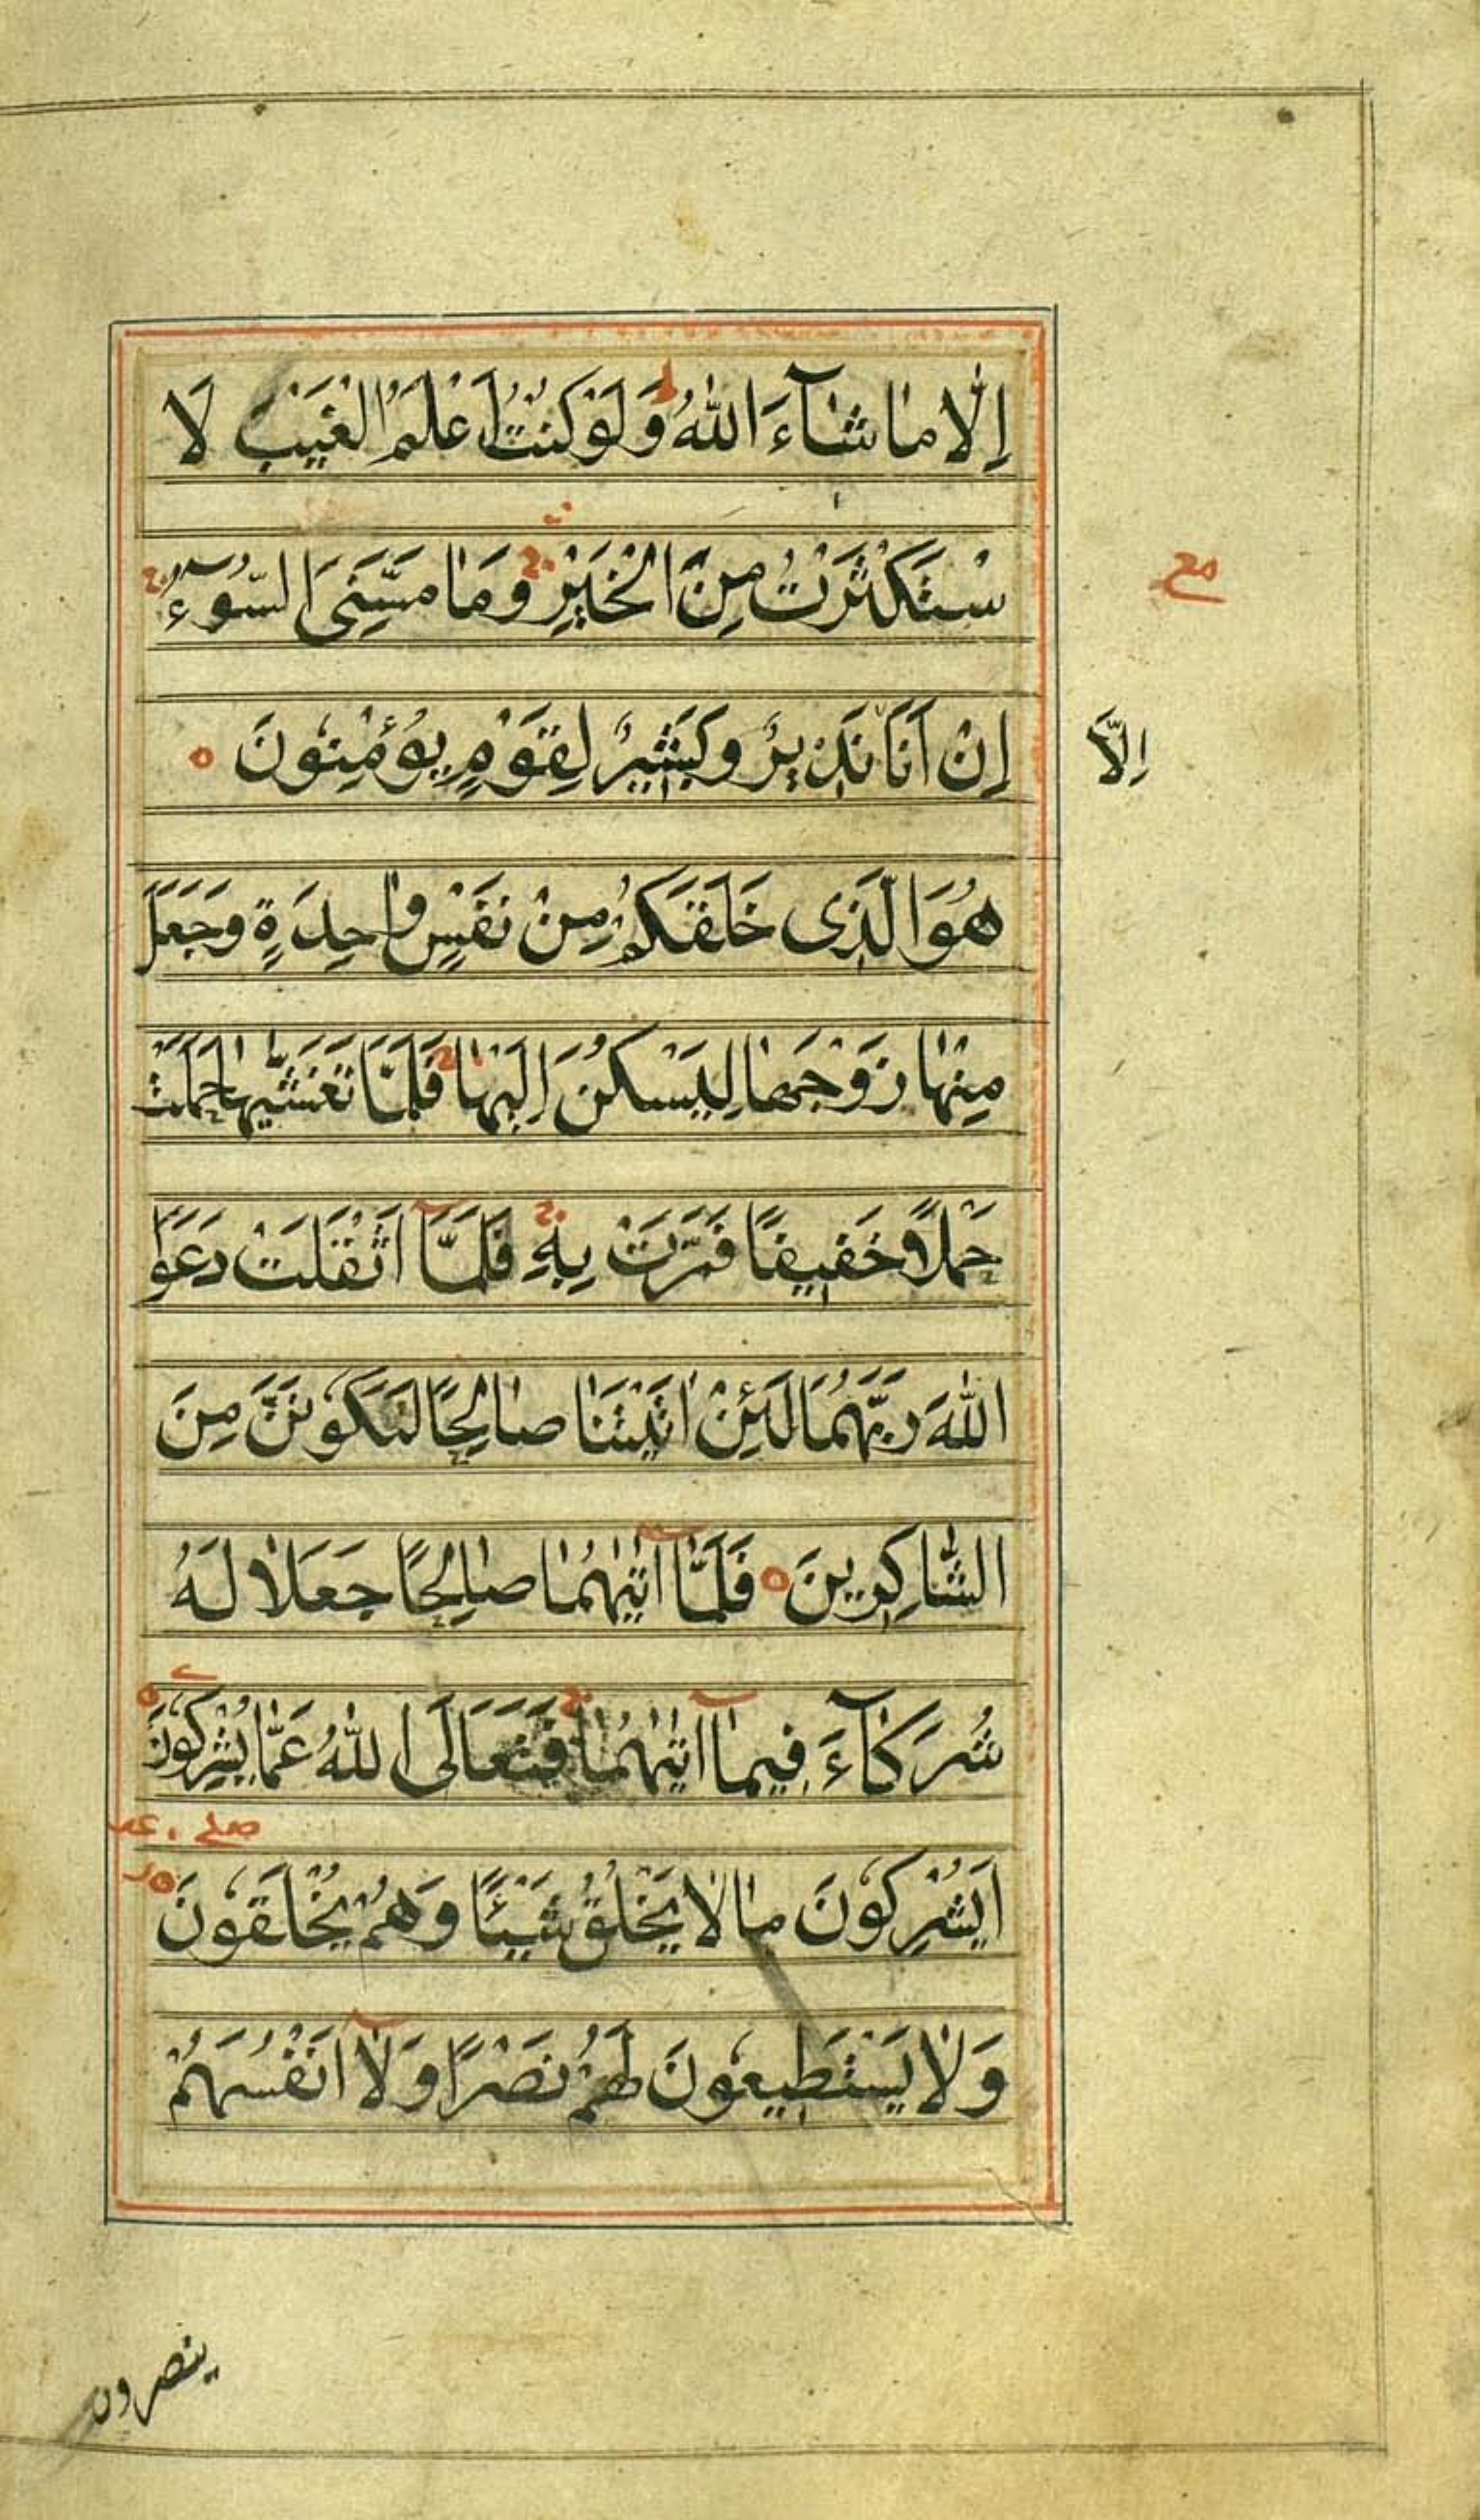 اِلَّا مَا شَآءَ اللّٰهُ ط وَلَوْ كُنْتُ اَعْلَمُ الْغَيْبَ لَا
سْتَكْثَرْتُ مِنَ الْخَيْرِ ج وَمَا مَسَّنِىَ السُّوٓءُ ج
مع
اِنْ اَنَا نَذِيرٌ وَبَشِيرٌ لِقَوْمٍ يُؤْمِنُونَ ه
اِلَّا
هُوَ الَّذِى خَلَقَكُمْ مِنْ نَفْسٍ وٰاحِدَةٍ وَجَعَلَ
مِنْهٰا زَوْجَهٰا لِيَسْكُنَ اِلَيْهٰا ج فَلَمَّا تَغَشّٰيهٰا حَمَلَتْ
حَمْلًا خَفِيفًا فَمَرَّتْ بِهِ ج فَلَمَّآ اَثْقَلَتْ دَعَوَا
اللّٰهَ رَبَّهُمَا لَئِنْ اٰتَيْتَنَا صٰالِحًا لَنَكُونَنَّ مِنَ
الشّٰاكِرِينَ ه فَلَمَّآ اٰتٰيهُمٰا صٰالِحًا جَعَلٰا لَهُ
شُرَكٰآءَ فِيمٰآ اٰتٰيهُمٰا ج فَتَعَالَى اللّٰهُ عَمّٰا يُشْرِكُونَ ه
صلے
اَيُشْرِكُونَ مٰا لٰا يَخْلُقُ شَيْئًا وَهُمْ يُخْلَقُونَ ه
وَلٰا يَسْتَطِيعُونَ لَهُمْ نَصْرًا وَلٰآ اَنْفُسَهُمْ
ينصرون